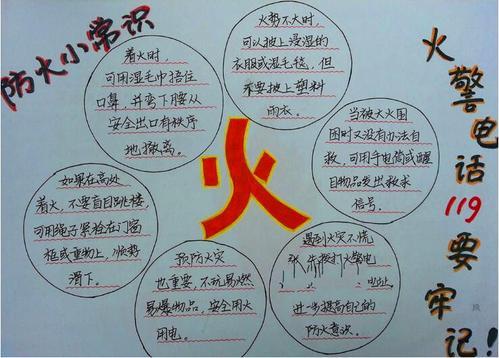 防火小常识
着火时,
可用湿毛巾捂住
口鼻,并弯下腰从
安全出口有秩序
地撤离。
火势不大时,
可以披上浸湿的
衣服或湿毛毯,但
不要披上塑料
雨衣。
当被大火围
困时又没有办法自
救,可用手电筒或醒
目物品发出求救
信号。
如果在高处
着火,不要盲目跳楼,
可用绳子紧拴在门窗
框或重物上,顺势
滑下。
火
预防火灾
也重要,不玩易燃
易爆物品,安全用火
用电。
遇到火灾不慌
张,打火警电
地址。
进一步提高自己的
防火意识。
火警电话119要牢记!